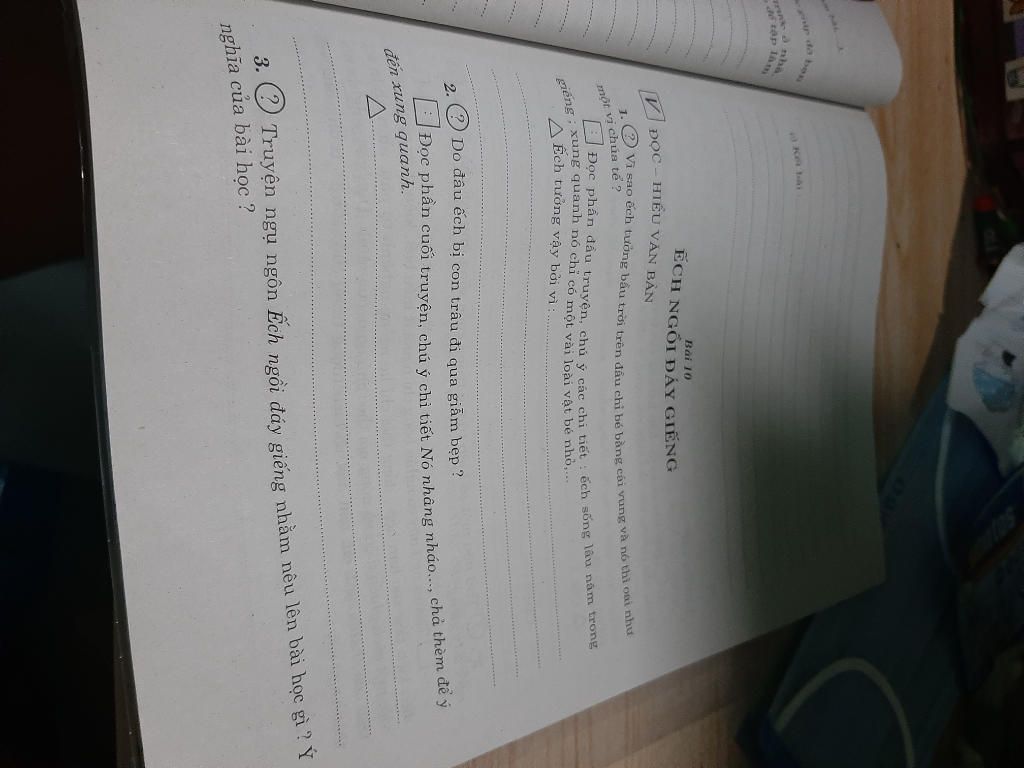 c) Kết bài :
Bài 10
ẾCH NGỒI ĐÁY GIẾNG
V ĐỌC – HIỂU VĂN BẢN
1. ? Vì sao ếch tưởng bầu trời trên đầu chỉ bé bằng cái vung và nó thì oai như
một vị chúa tể ?
: Đọc phần đầu truyện, chú ý các chi tiết : ếch sống lâu năm trong
giếng ; xung quanh nó chỉ có một vài loài vật bé nhỏ,...
△ Ếch tưởng vậy bởi vì :
2. ? Do đâu ếch bị con trâu đi qua giẫm bẹp ?
: Đọc phần cuối truyện, chú ý chi tiết Nó nhâng nháo..., chả thèm để ý
đến xung quanh.
△
3. ? Truyện ngụ ngôn Ếch ngồi đáy giếng nhằm nêu lên bài học gì ? Ý
nghĩa của bài học ?